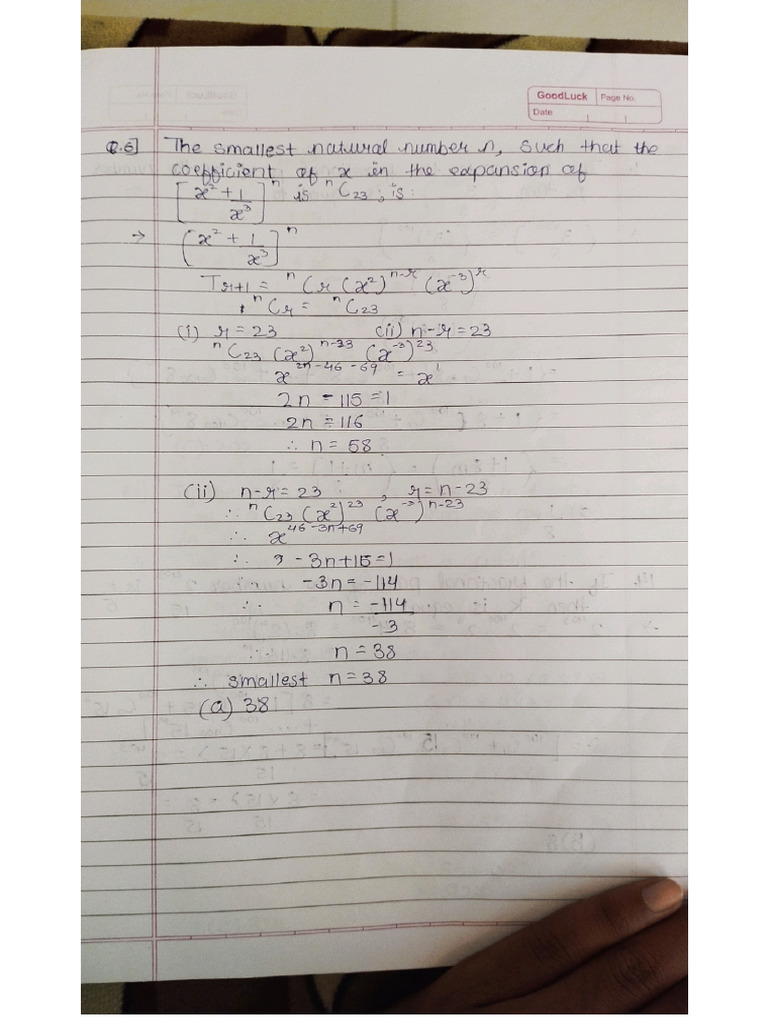 GoodLuck Page No.
Date
Q.6] The smallest natural number n, such that the
coefficient of x in the expansion of
[x² + 1/x³]ⁿ is ⁿC₂₃, is :
→ [x² + 1/x³]ⁿ
Tr+1 = ⁿCr (x²)ⁿ⁻ʳ (x⁻³)ʳ
ⁿCr = ⁿC₂₃
(i) r = 23 (ii) n-r = 23
ⁿC₂₃ (x²)ⁿ⁻²³ (x⁻³)²³
x²ⁿ⁻⁴⁶⁻⁶⁹ = x¹
2n - 115 = 1
2n = 116
∴ n = 58
(ii) n-r = 23 , r = n-23
∴ ⁿC₂₃ (x²)²³ (x⁻³)ⁿ⁻²³
∴ x⁴⁶⁻³ⁿ⁺⁶⁹
∴ -3n+115 = 1
∴ -3n = -114
∴ n = -114/-3
∴ n = 38
∴ smallest n = 38
(a) 38